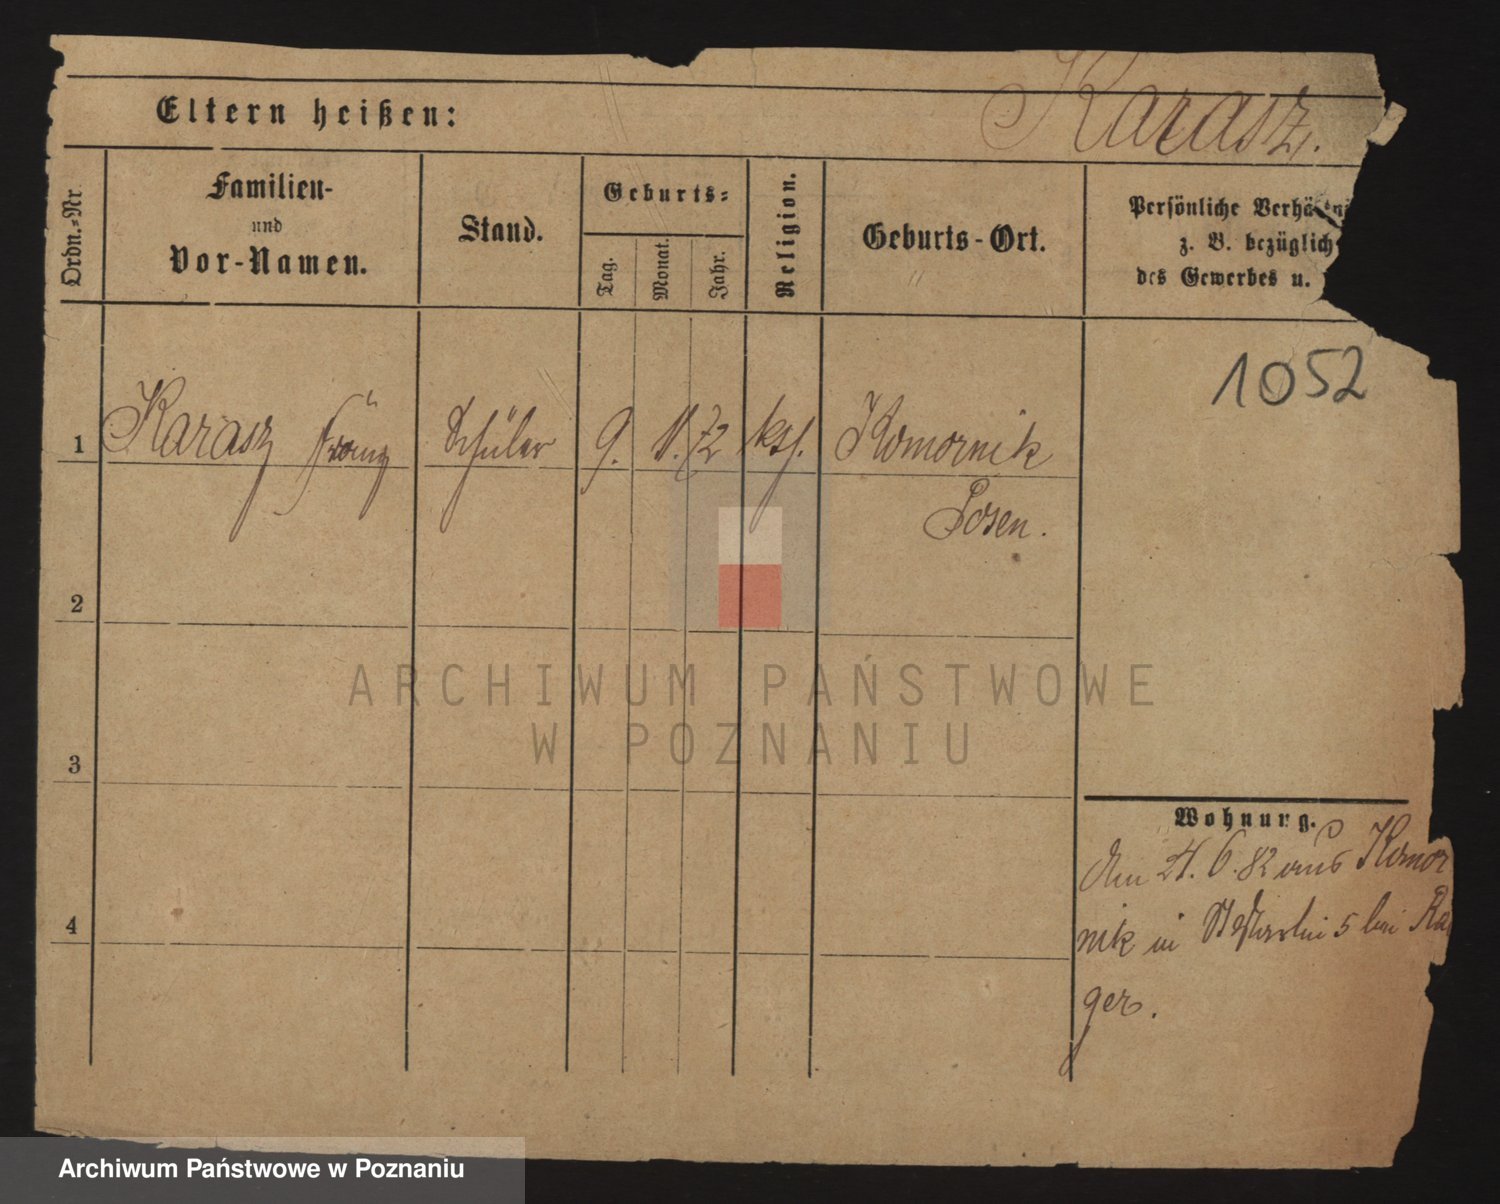 Karasz.
Eltern heißen:
Ordn.-Nr.
Familien-
und
Vor-Namen.
Stand.
Geburts-
Tag.
Monat.
Jahr.
Religion.
Geburts-Ort.
Persönliche
z. B. bezüglich
des Gewerbes u.
1052
1 Karasz Franz Schüler 9. 11. 72 kth. Komornik
Posen.
2
3
4
Wohnung.
Am 24. 6. 82 aus Komor
nik in St. 5 bei Ra
ger.
ARCHIWUM PAŃSTWOWE
W POZNANIU
Archiwum Państwowe w Poznaniu